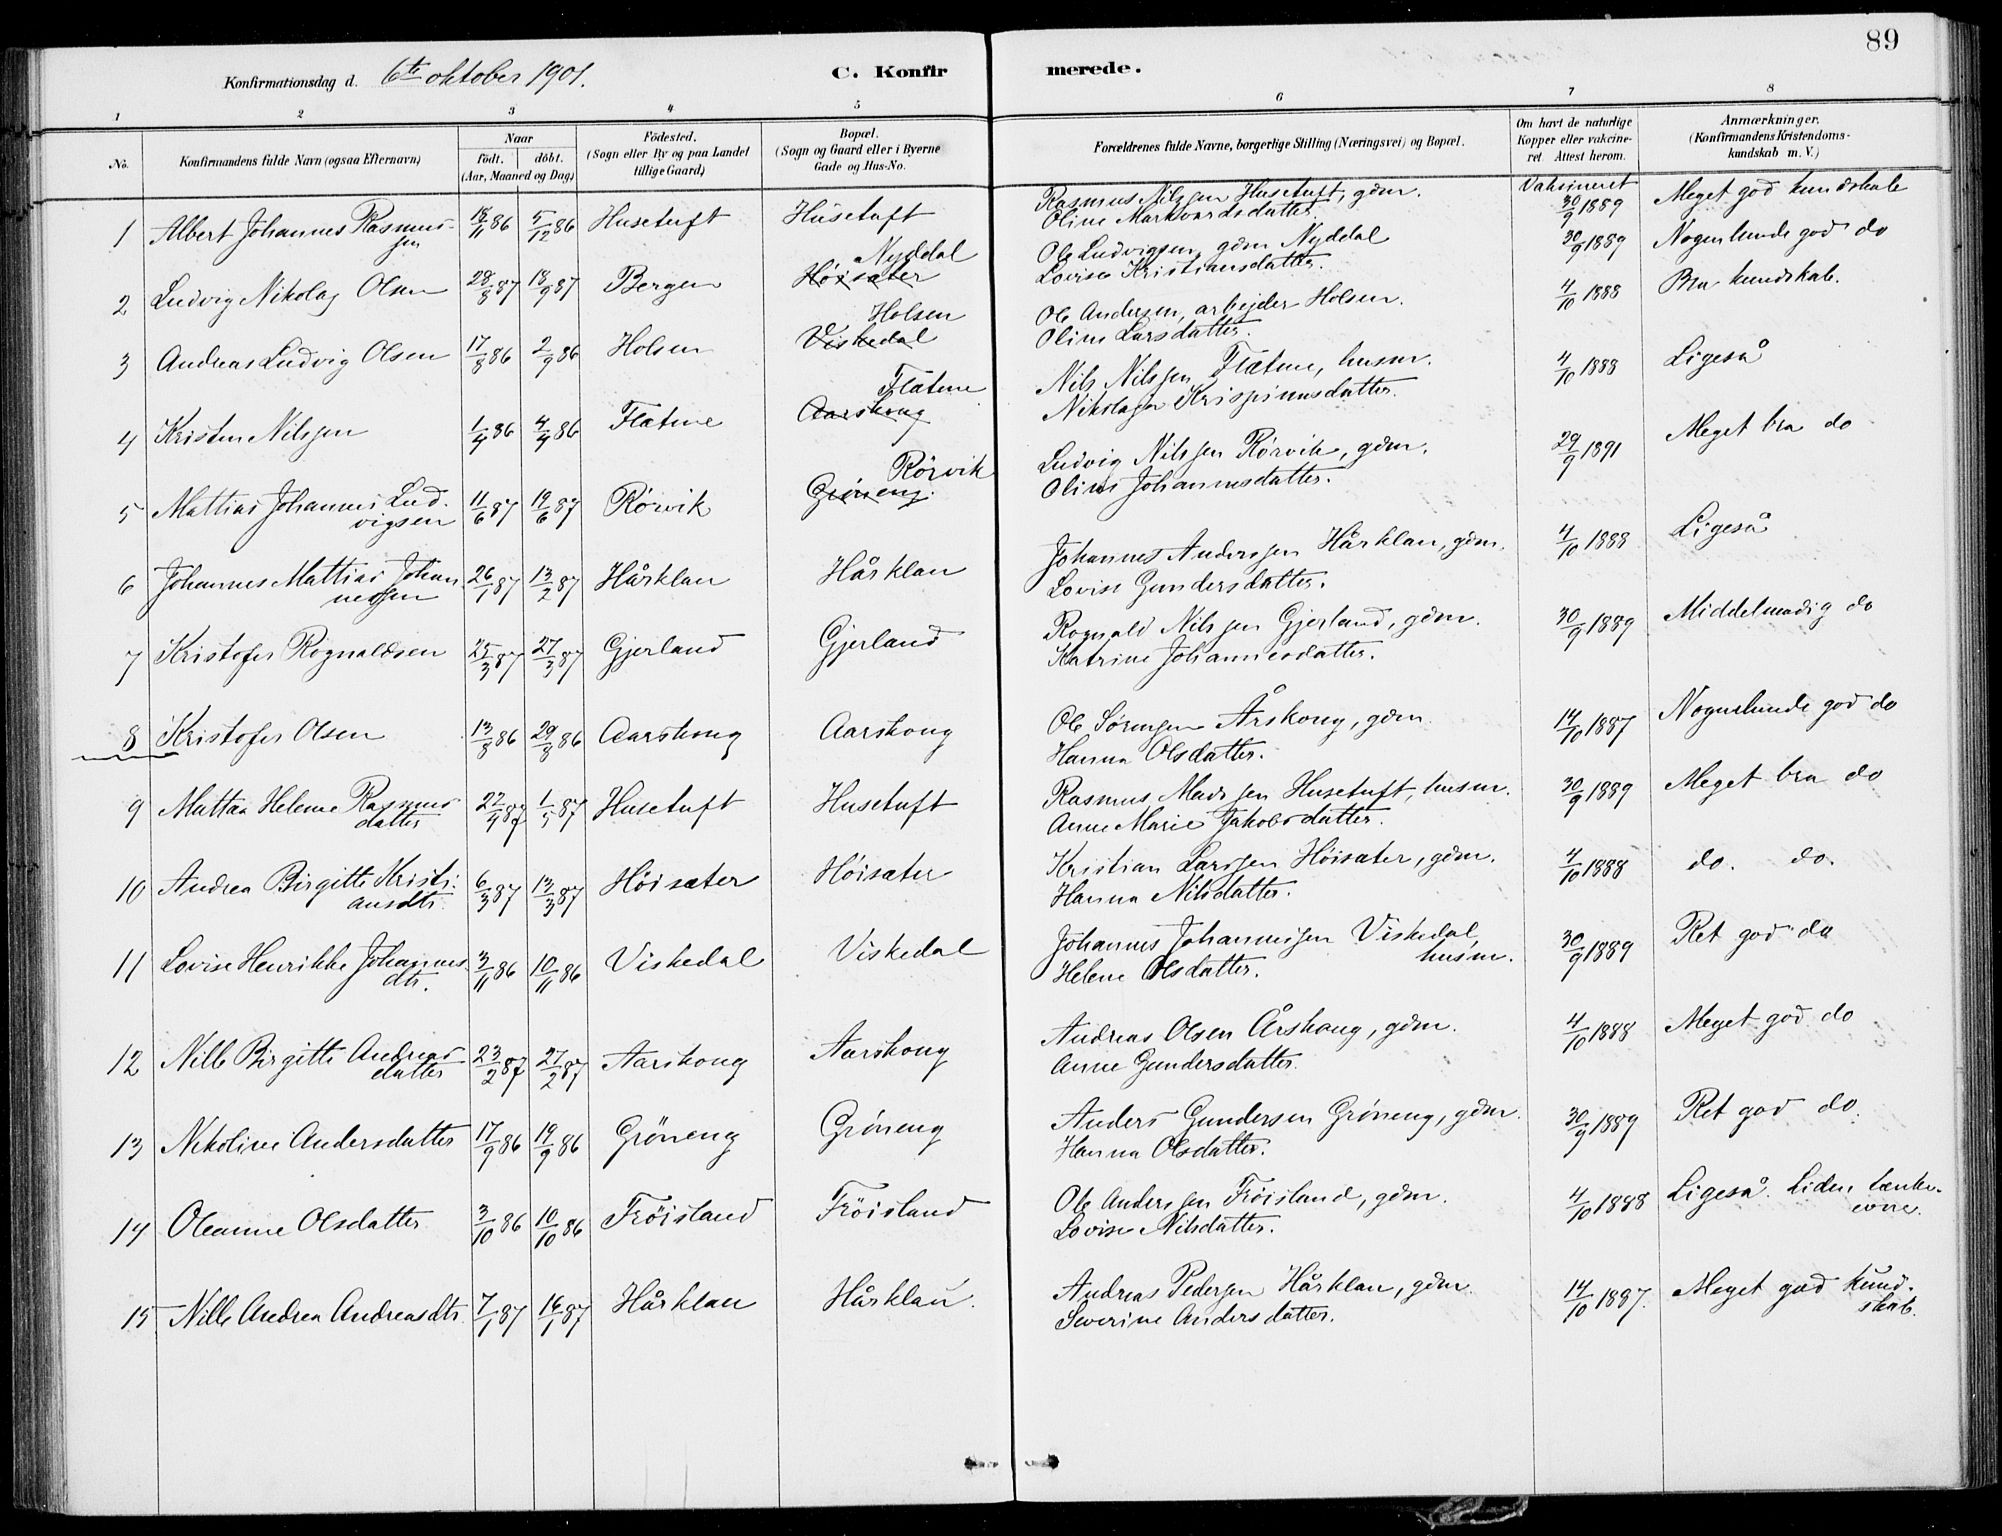 89
Konfirmationsdag d. 6te oktober 1901.
C. Konfirmerede.
1 2 3 4 5 6 7 8
No.
Konfirmandens fulde Navn (ogsaa Efternavn)
Naar
födt. döbt.
(Aar, Maaned og Dag)
Födested.
(Sogn eller By og paa Landet
tillige Gaard)
Bopæl.
(Sogn og Gaard eller i Byerne
Gade og Hus-No.
Forældrenes fulde Navne, borgerlige Stilling (Næringsvei) og Bopæl.
Om havt de naturlige
Kopper eller vakcine-
ret Attest herom.
Anmærkninger.
(Konfirmandens Kristendoms-
kundskab m. V.)
1 Albert Johannes Rasmus-
sen 18/11 86 5/12 86 Husetuft Husetuft
Rasmus Nilssen Husetuft, gdm.
Oline Markvardsdatter.
Vaksineret
30/9 1889 Meget god kundskab
2 Ludvig Nikolaj Olsen 28/8 87 18/9 87 Bergen Nyddal
Höisæter
Ole Ludvigsen, gdm Nyddal
Lovise Kristiansdatter.
30/9 1889 Nogenlunde god do
3 Andreas Ludvig Olsen 17/8 86 2/9 86 Holsen Holsen
Viskedal
Ole Andersen, arbejder Holsen.
Oline Larsdatter.
4/10 1888 Bra kundskab.
4 Kristen Nilssen 1/4 86 4/4 86 Flatene Flatene
Aarskoug
Nils Nilssen Flatene, husm.
Nikolager Krispinusdatter.
4/10 1888 Ligeså
5 Mattias Johannes Lud-
vigsen 11/6 87 19/6 87 Rörvik Rörvik
Gröneng.
Ludvig Nilssen Rörvik, gdm.
Oline Johannesdatter.
29/9 1891 Meget bra do
6 Johannes Mattias Johan
nessen 26/1 87 13/2 87 Hårklau Hårklau
Johannes Anderssen Hårklau, gdm.
Lovise Gundersdatter.
4/10 1888 Ligeså
7 Kristofer Rognaldsen 25/3 87 27/3 87 Gjerland Gjerland
Rognald Nilssen Gjerland, gdm.
Katrine Johannesdatter.
30/9 1889 Middelmadig do
8 Kristofer Olsen 13/8 86 29/8 86 Aarskoug Aarskoug
Ole Sörensen Årskoug, gdm.
Hanna Olsdatter.
14/10 1887 Nogenlunde god do
9 Mattea Helene Rasmus
datter 22/4 87 1/5 87 Husetuft Husetuft
Rasmus Madssen Husetuft, husm.
Anne Marie Jakobsdatter.
30/9 1889 Meget bra do
10 Andrea Birgitte Kristi-
ansdtr. 6/3 87 13/3 87 Höisæter Höisæter
Kristian Larssen Höisæter, gdm.
Hanna Nilsdatter.
4/10 1888 do. do.
11 Lovise Henrikke Johannes
dtr. 3/11 86 10/11 86 Viskedal Viskedal
Johannes Johannessen Viskedal,
husm.
Helene Olsdatter.
30/9 1889 Ret god do
12 Nille Birgitte Andreas
datter 23/2 87 27/2 87 Aarskoug Aarskoug
Andreas Olsen Årskoug, gdm.
Anne Gundersdatter.
4/10 1888 Meget god do
13 Nikoline Andersdatter 17/9 86 19/9 86 Gröneng Gröneng
Anders Gundersen Gröneng, gdm.
Hanna Olsdatter.
30/9 1889 Ret god do.
14 Oleanne Olsdatter 3/10 86 10/10 86 Fröisland Fröisland
Ole Anderssen Fröisland, gdm.
Lovise Nilsdatter.
4/10 1888 Ligeså. Liden tænke-
evne.
15 Nille Andrea Andreasdtr. 7/1 87 16/1 87 Hårklau Hårklau.
Andreas Pedersen Hårklau, gdm.
Severine Andersdatter.
14/10 1887. Meget god kund-
skab.